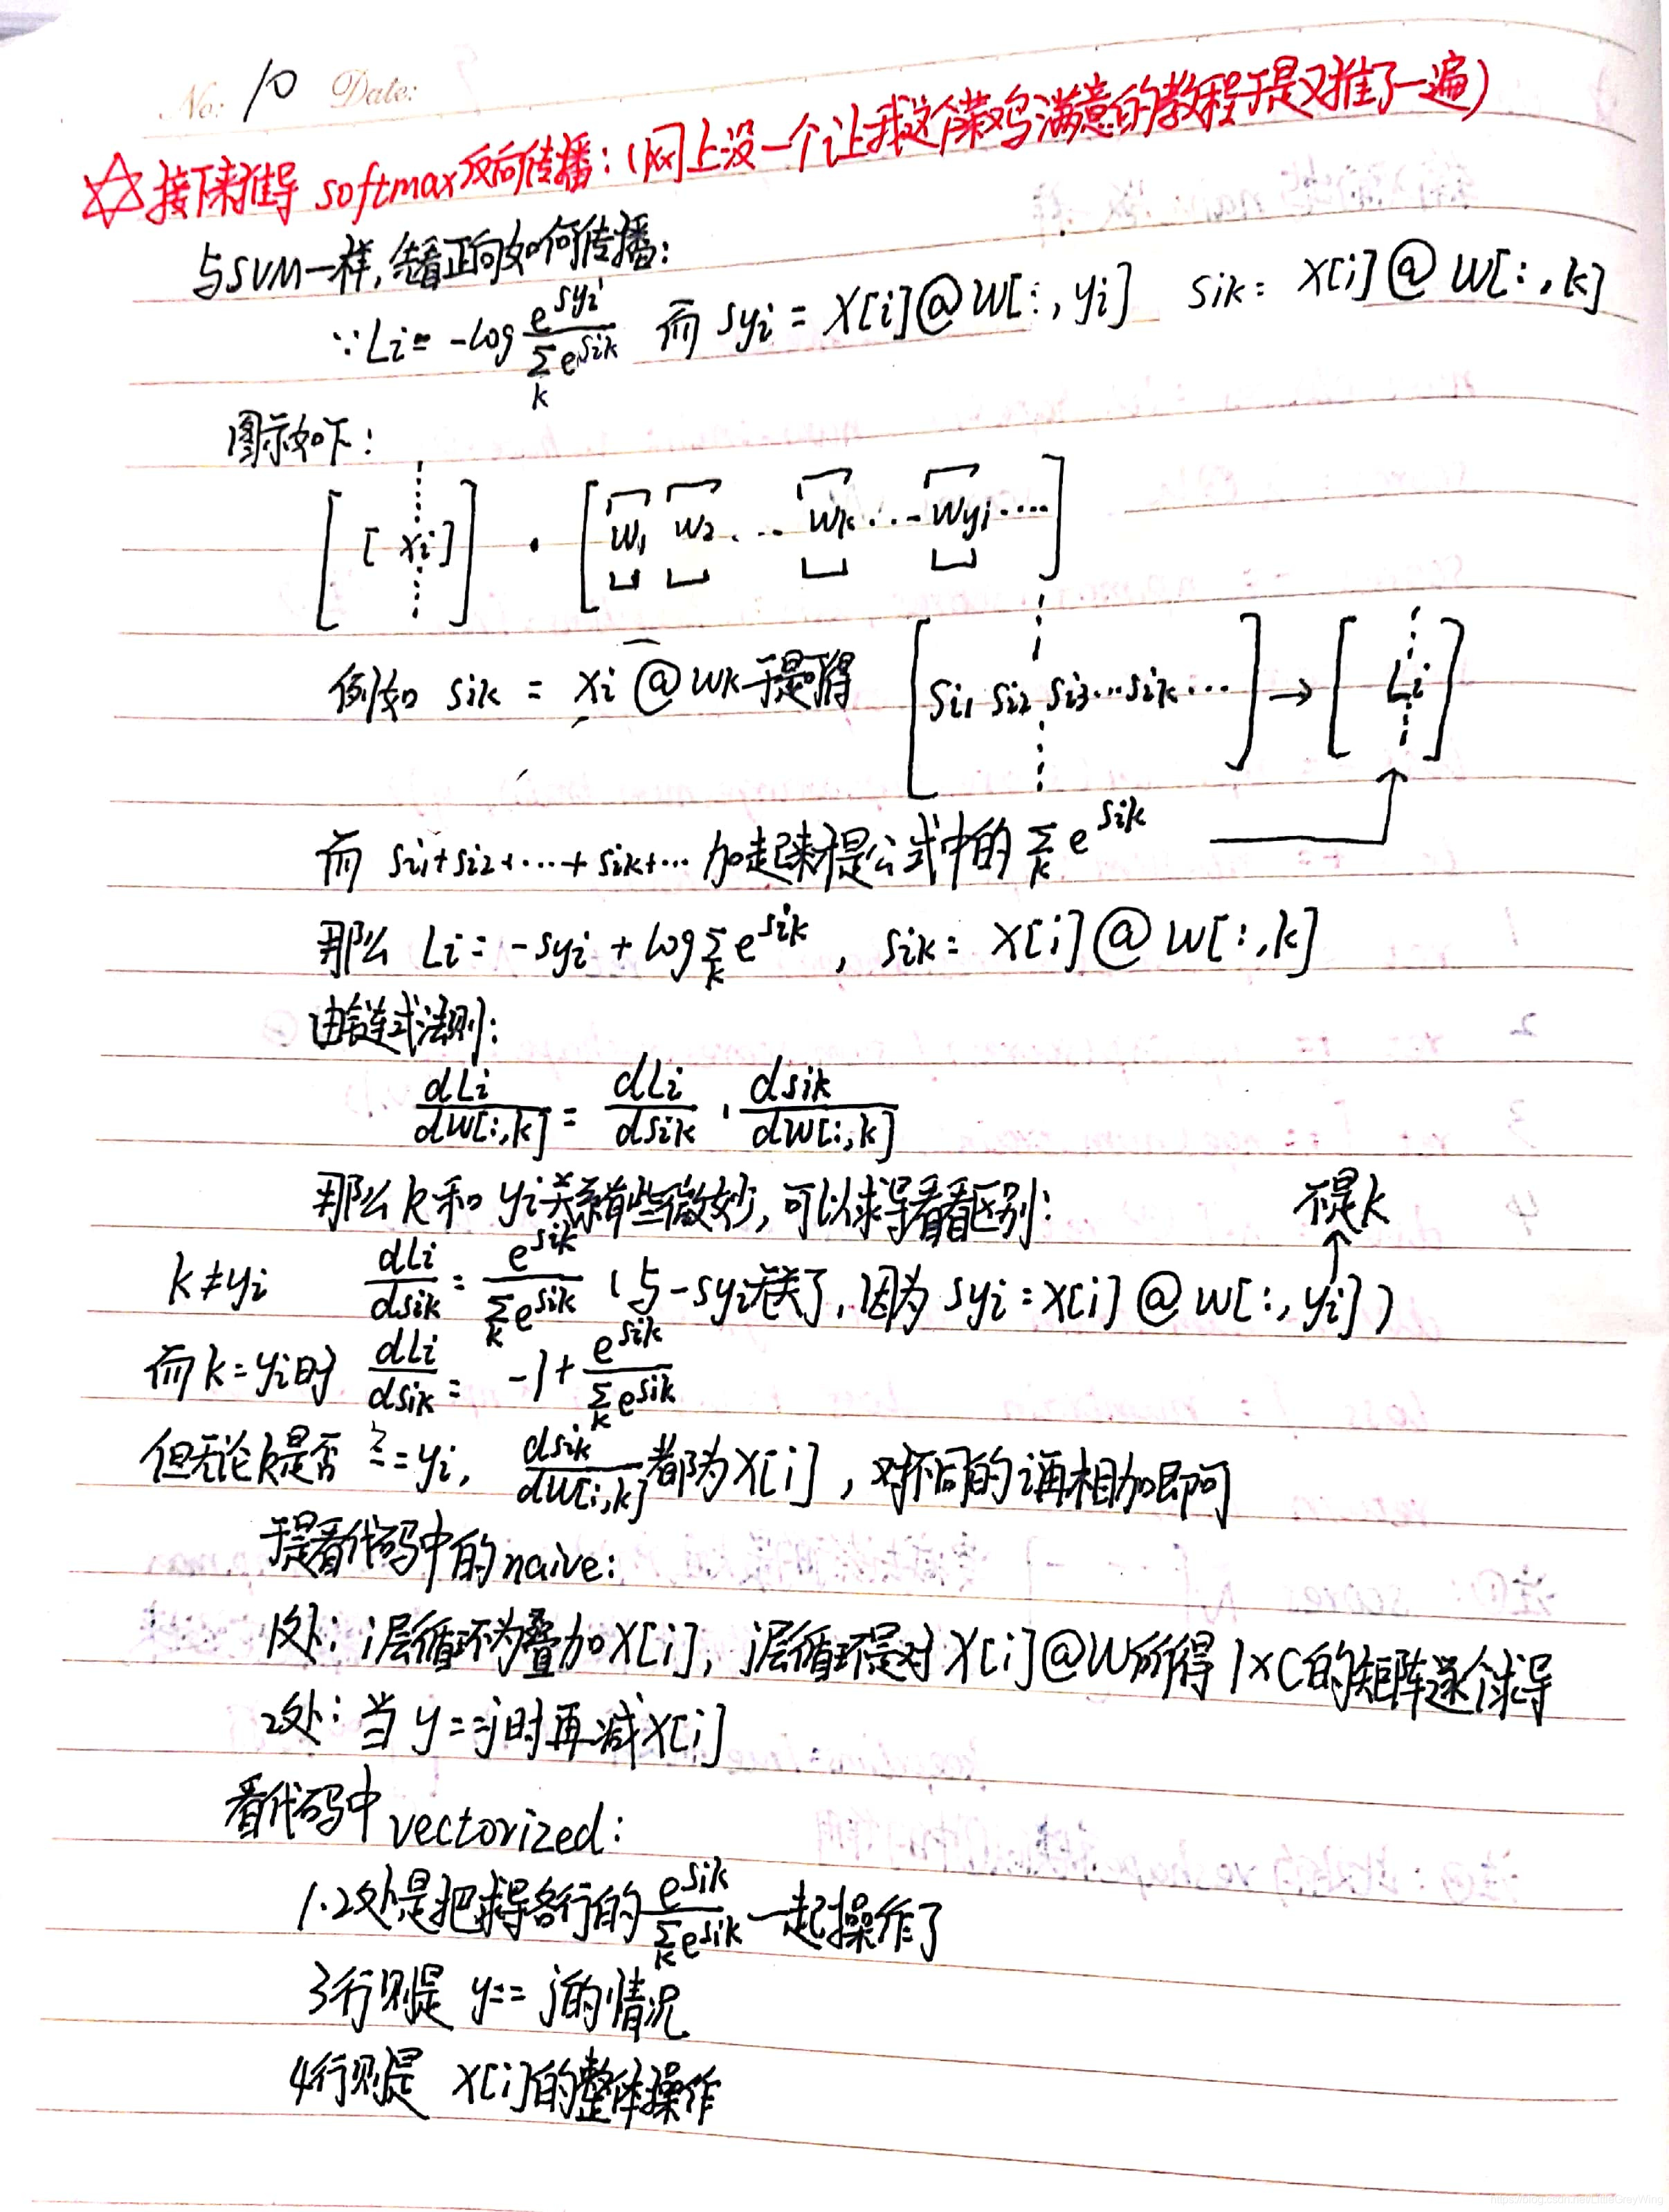 No: 10 Date:
☆接下来推导 softmax反向传播:(网上没一个让我这个菜鸡满意的教程于是又推了一遍)
与SVM一样,先看正向如何传播:
∵Li = -log e^syi / Σ_k e^sik 而 syi = X[i]@W[:, yi] sik = X[i]@W[:, k]
图示如下:
[ [ xi ] ] · [ w1 w2 ... wk ... wyi .... ]
例如 sik = xi @ wk 于是可得 [ si1 si2 si3 ... sik ... ] → [ Li ]
而 si1+si2+...+sik+... 加起来才是公式中的 Σ_k e^sik
那么 Li = -syi + log Σ_k e^sik , sik = X[i]@W[:,k]
由链式法则:
dLi/dW[:,k] = dLi/dsik · dsik/dW[:,k]
那么 k 和 yi 关系有些微妙,可以求导看看区别: 不是k
k≠yi dLi/dsik = e^sik / Σ_k e^sik (与-syi无关了,因为 syi = X[i]@W[:, yi])
而 k=yi时 dLi/dsik = -1 + e^sik / Σ_k e^sik
但无论k是否 ==yi, dsik/dW[:,k] 都为X[i],对不同的i再相加即可
于是看代码中的naive:
1处: i层循环为叠加X[i], j层循环是对X[i]@W所得1×C的矩阵逐个求导
2处: 当 y==j时再减X[i]
看代码中vectorized:
1.2处是把求导各行的 e^sik / Σ_k e^sik 一起操作了
3行则是 y==j的情况
4行则是 X[i]的整体操作